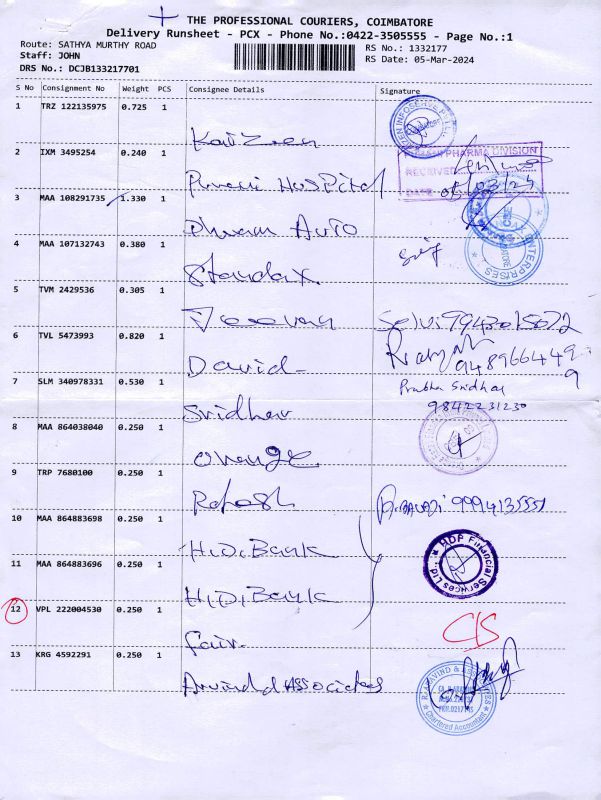 THE PROFESSIONAL COURIERS, COIMBATORE
Delivery Runsheet - PCX - Phone No.:0422-3505555 - Page No.:1
Route: SATHYA MURTHY ROAD
RS No.: 1332177
Staff: JOHN
RS Date: 05-Mar-2024
DRS No.: DCJB133217701
S No Consignment No Weight PCS Consignee Details Signature
1 TRZ 122135975 0.725 1
2 IXM 3495254 0.240 1 Hospital
PHARMA DIVISION
RECEIVED
DATE 05/03/24
3 MAA 108291735 1.330 1 Auto
ENTERPRISES
4 MAA 107132743 0.380 1
5 TVM 2429536 0.305 1 Selvi 9943015072
6 TVL 5473993 0.820 1 David
9489664499
7 SLM 340978331 0.530 1 Sridhar
Prabha Sridhar
9842231230
8 MAA 864038040 0.250 1 Orange
9 TRP 7680100 0.250 1 Rakesh
10 MAA 864883698 0.250 1 H.D. Bank
11 MAA 864883696 0.250 1 H.D. Bank
HDP Financial Services Ltd.
12 VPL 222004530 0.250 1 Fair
C/S
13 KRG 4592291 0.250 1 Arvind Associates
Chartered Accountant